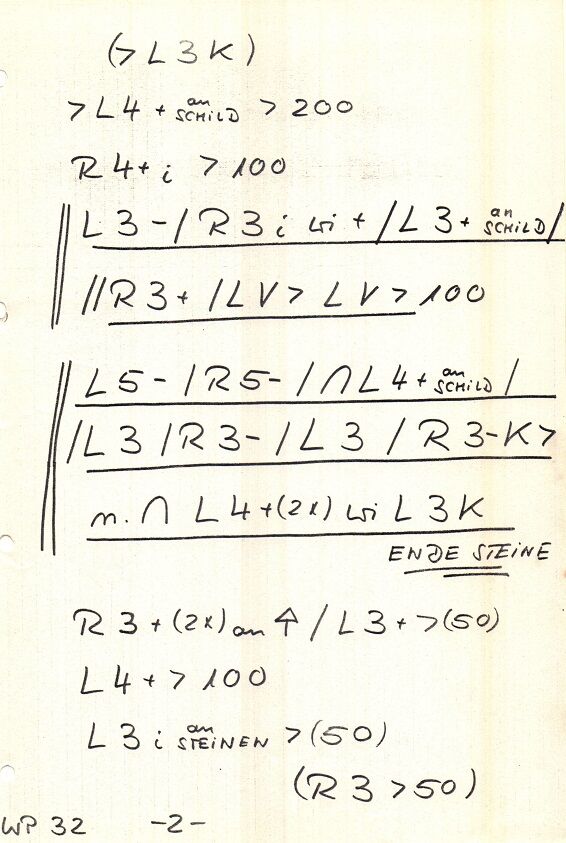 (> L 3 K)
> L4 + an SCHILD > 200
R 4 + i > 100
L 3 - / R 3 i wi + / L 3 + an SCHILD /
// R 3 + / L V > L V > 100
L 5 - / R 5 - / ∩ L 4 + an SCHILD /
/ L 3 / R 3 - / L 3 / R 3 - K >
n. ∩ L 4 + (2x) wi L 3 K
ENDE STEINE
R 3 + (2x) an ↑ / L 3 + > (50)
L 4 + > 100
L 3 i an STEINEN > (50)
(R 3 > 50)
WP 32 -2-